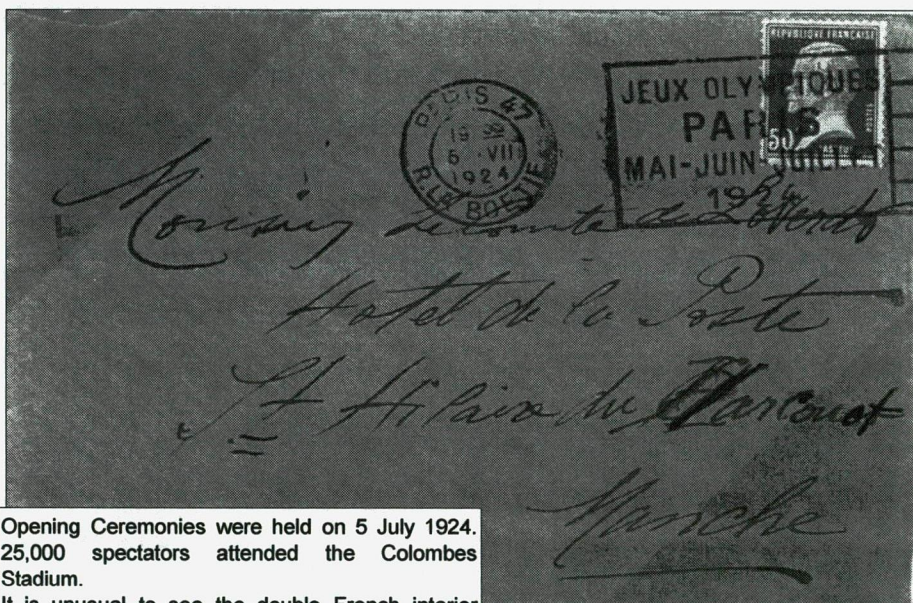 REPUBLIQUE FRANCAISE
50
PARIS 47
19 30
5 VII
1924
R. LA BOETIE
JEUX OLYMPIQUES
PARIS
MAI-JUIN-JUILLET
1924
Monsieur Lecomte de
Hotel de la Poste
St Hilaire du Harcouet
Manche
Opening Ceremonies were held on 5 July 1924.
25,000 spectators attended the Colombes
Stadium.
It is unusual to see the double French interior